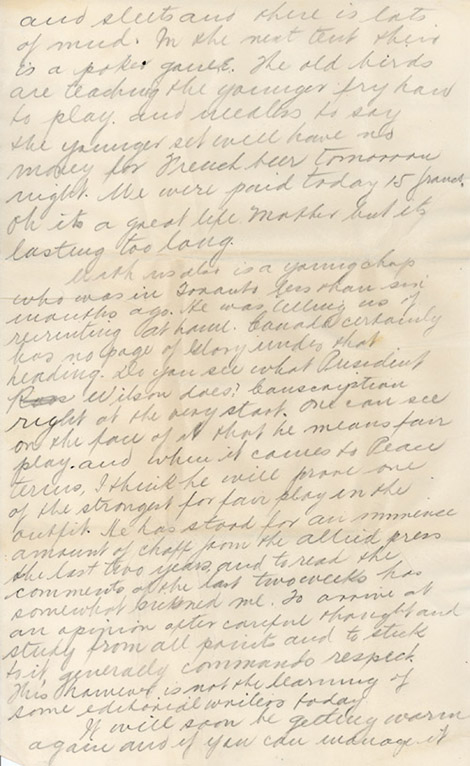 and sleets and there is lots
of mud. In the next tent there
is a poker game. The old birds
are teaching the younger fry how
to play, and needless to say
the younger set will have no
money for French beer tomorrow
night. We were paid today 15 francs.
Oh its a great life Mother but its
lasting too long.
With us also is a young chap
who was in Toronto less than six
months ago. He was telling us of
recruiting at home. Canada certainly
has no page of Glory under that
heading. Do you see what President
Wilson does? Conscription
right at the very start. One can see
on the face of it that he means fair
play. and when it comes to Peace
terms, I think he will prove one
of the strongest for fair play in the
outfit. He has stood for an immence
amount of chaff from the allied press
the last two years, and to read the
comments of the last two weeks has
somewhat sickened me. To arrive at
an opinion after careful thought and
study from all points and to stick
to it generally commands respect.
This however is not the learning of
some editorial writers today.
It will soon be getting warm
again and if you can manage it